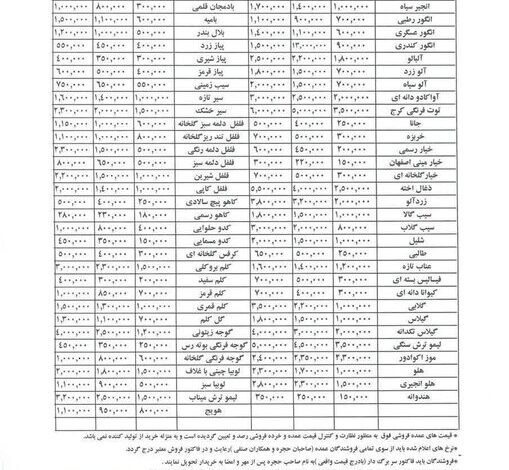 انجیر سیاه ۱,۰۰۰,۰۰۰ ۱,۴۰۰,۰۰۰ ۱,۷۰۰,۰۰۰ بادمجان قلمی ۳۰۰,۰۰۰ ۸۰۰,۰۰۰ ۱,۰۰۰,۰۰۰
انگور رطبی ۷۰۰,۰۰۰ ۹۰۰,۰۰۰ ۱,۱۰۰,۰۰۰ بامیه ۶۰۰,۰۰۰ ۱,۱۰۰,۰۰۰ ۱,۵۰۰,۰۰۰
انگور عسگری ۶۰۰,۰۰۰ ۱,۱۰۰,۰۰۰ ۱,۵۰۰,۰۰۰ بلال بندر ۵۰۰,۰۰۰ ۱,۰۰۰,۰۰۰ ۱,۲۰۰,۰۰۰
انگور کندری ۹۰۰,۰۰۰ ۱۳,۰۰۰,۰۰۰ ۱,۵۰۰,۰۰۰ پیاز زرد ۴۰۰,۰۰۰ ۴۵۰,۰۰۰ ۵۵۰,۰۰۰
آلبالو ۱,۸۰۰,۰۰۰ ۲,۲۰۰,۰۰۰ ۲,۵۰۰,۰۰۰ پیاز شیری ۳۰۰,۰۰۰ ۳۵۰,۰۰۰ ۴۰۰,۰۰۰
آلو زرد ۷۰۰,۰۰۰ ۱,۵۰۰,۰۰۰ ۱,۸۰۰,۰۰۰ پیاز قرمز ۴۰۰,۰۰۰ ۵۰۰,۰۰۰ ۶۰۰,۰۰۰
آلو سیاه ۷۰۰,۰۰۰ ۱,۵۰۰,۰۰۰ ۲,۰۰۰,۰۰۰ سیب زمینی ۵۵۰,۰۰۰ ۶۵۰,۰۰۰ ۷۵۰,۰۰۰
آواکادو دانه ای ۲,۰۰۰,۰۰۰ ۲,۵۰۰,۰۰۰ سیر تازه ۱,۰۰۰,۰۰۰ ۱,۴۰۰,۰۰۰ ۱,۶۰۰,۰۰۰
توت فرنگی کرج ۳,۵۰۰,۰۰۰ ۵,۰۰۰,۰۰۰ ۶,۰۰۰,۰۰۰ سیر خشک ۱,۵۰۰,۰۰۰ ۲,۰۰۰,۰۰۰ ۲,۳۰۰,۰۰۰
جانا ۲۵۰,۰۰۰ ۴۰۰,۰۰۰ ۵۰۰,۰۰۰ فلفل دلمه سبز گلخانه ۶۰۰,۰۰۰ ۱,۰۰۰,۰۰۰ ۱,۱۵۰,۰۰۰
خربزه ۳۰۰,۰۰۰ ۵۰۰,۰۰۰ ۷۰۰,۰۰۰ فلفل تند ریزگلخانه ۸۰۰,۰۰۰ ۱,۰۰۰,۰۰۰ ۱,۱۰۰,۰۰۰
خیار رسمی ۲۰۰,۰۰۰ ۴۵۰,۰۰۰ ۶۰۰,۰۰۰ فلفل دلمه رنگی ۵۰۰,۰۰۰ ۱,۵۰۰,۰۰۰ ۲,۳۰۰,۰۰۰
خیار مینی اصفهان ۱۵۰,۰۰۰ ۲۲۰,۰۰۰ ۳۰۰,۰۰۰ فلفل دلمه سبز ۵۰۰,۰۰۰ ۶۵۰,۰۰۰ ۸۰۰,۰۰۰
خیارگلخانه ای ۳۰۰,۰۰۰ ۵۰۰,۰۰۰ ۷۰۰,۰۰۰ فلفل شیرین ۱,۰۰۰,۰۰۰ ۱,۵۰۰,۰۰۰ ۲,۲۰۰,۰۰۰
ذغال اخته ۲,۵۰۰,۰۰۰ ۴,۰۰۰,۰۰۰ ۵,۵۰۰,۰۰۰ فلفل کاپی ۱,۰۰۰,۰۰۰ ۱,۴۰۰,۰۰۰ ۲,۰۰۰,۰۰۰
زردآلو ۲,۰۰۰,۰۰۰ ۳,۲۰۰,۰۰۰ ۳,۸۰۰,۰۰۰ کاهو پیچ سالادی ۲۵۰,۰۰۰ ۴۰۰,۰۰۰ ۵۰۰,۰۰۰
سیب گالا ۱,۰۰۰,۰۰۰ ۱,۵۰۰,۰۰۰ ۱,۸۰۰,۰۰۰ کاهو رسمی ۱۸۰,۰۰۰ ۲۳۰,۰۰۰ ۲۸۰,۰۰۰
سیب گلاب ۸۰۰,۰۰۰ ۱,۵۰۰,۰۰۰ ۲,۰۰۰,۰۰۰ کدو حلوایی ۴۰۰,۰۰۰ ۸۰۰,۰۰۰ ۱,۰۰۰,۰۰۰
شلیل ۱,۰۰۰,۰۰۰ ۲,۰۰۰,۰۰۰ ۳,۰۰۰,۰۰۰ کدو مسمایی ۱۵۰,۰۰۰ ۳۵۰,۰۰۰ ۴۵۰,۰۰۰
طالبی ۲۵۰,۰۰۰ ۵۰۰,۰۰۰ ۶۵۰,۰۰۰ کرفس گلخانه ای ۳۰۰,۰۰۰ ۴۰۰,۰۰۰ ۵۰۰,۰۰۰
عناب تازه ۱,۲۰۰,۰۰۰ ۱,۴۰۰,۰۰۰ ۱,۶۰۰,۰۰۰ کلم بروکلی ۱,۵۰۰,۰۰۰ ۲,۳۰۰,۰۰۰ ۳,۰۰۰,۰۰۰
فیسالیس بسته ای ۵۰۰,۰۰۰ ۷۰۰,۰۰۰ کلم سفید ۲۰۰,۰۰۰ ۳۰۰,۰۰۰ ۴۰۰,۰۰۰
کیوانا دانه ای ۴۰۰,۰۰۰ ۷۰۰,۰۰۰ کلم قرمز ۷۰۰,۰۰۰ ۸۵۰,۰۰۰ ۱,۰۰۰,۰۰۰
گلابی ۱,۰۰۰,۰۰۰ ۲,۲۰۰,۰۰۰ ۳,۵۰۰,۰۰۰ کلم قمری ۱,۰۰۰,۰۰۰ ۱,۳۰۰,۰۰۰ ۱,۵۰۰,۰۰۰
گیلاس ۱,۰۰۰,۰۰۰ ۱,۵۰۰,۰۰۰ ۱,۸۰۰,۰۰۰ گل کلم ۷۰۰,۰۰۰ ۱,۱۰۰,۰۰۰ ۱,۳۰۰,۰۰۰
گیلاس تکدانه ۲,۰۰۰,۰۰۰ ۴,۰۰۰,۰۰۰ ۵,۰۰۰,۰۰۰ گوجه زیتونی ۱,۲۰۰,۰۰۰ ۲,۵۰۰,۰۰۰ ۴,۰۰۰,۰۰۰
لیمو ترش سنگی ۱,۵۰۰,۰۰۰ ۲,۵۰۰,۰۰۰ ۳,۰۰۰,۰۰۰ گوجه فرنگی بوته رس ۲۵۰,۰۰۰ ۳۵۰,۰۰۰ ۴۵۰,۰۰۰
موز اکوادور ۲,۳۰۰,۰۰۰ ۲,۳۵۰,۰۰۰ ۲,۴۰۰,۰۰۰ گوجه فرنگی گلخانه ۶۰۰,۰۰۰ ۸۰۰,۰۰۰ ۱,۰۰۰,۰۰۰
هلو ۱,۰۰۰,۰۰۰ ۱,۷۰۰,۰۰۰ ۲,۳۰۰,۰۰۰ لوبیا چیتی با غلاف ۱,۵۰۰,۰۰۰ ۱,۸۰۰,۰۰۰ ۲,۰۰۰,۰۰۰
هلو انجیری ۱,۰۰۰,۰۰۰ ۲,۳۰۰,۰۰۰ ۲,۸۰۰,۰۰۰ لوبیا سبز ۵۰۰,۰۰۰ ۹۰۰,۰۰۰ ۱,۱۰۰,۰۰۰
هندوانه ۱۵۰,۰۰۰ ۲۵۰,۰۰۰ ۳۵۰,۰۰۰ لیمو ترش میناب ۱,۵۰۰,۰۰۰ ۲,۵۰۰,۰۰۰ ۳,۲۰۰,۰۰۰
هویج ۸۰۰,۰۰۰ ۹۵۰,۰۰۰ ۱,۱۰۰,۰۰۰
* قیمت های عمده فروشی فوق به منظور نظارت و کنترل قیمت عمده و خرده فروشی رصد و تعیین گردیده است و به منزله خرید از تولید کننده نمی باشد.
*نرخ های اعلام شده باید از سوی تمامی فروشندگان عمده (صاحبان حجره و همکاران صنفی) رعایت و در فاکتور فروش معتبر درج گردد.
*فروشندگان باید فاکتور سر برگ دار (بادرج قیمت واقعی) به نام صاحب حجره پس از مهر و امضا به خریدار تحویل نمایند.